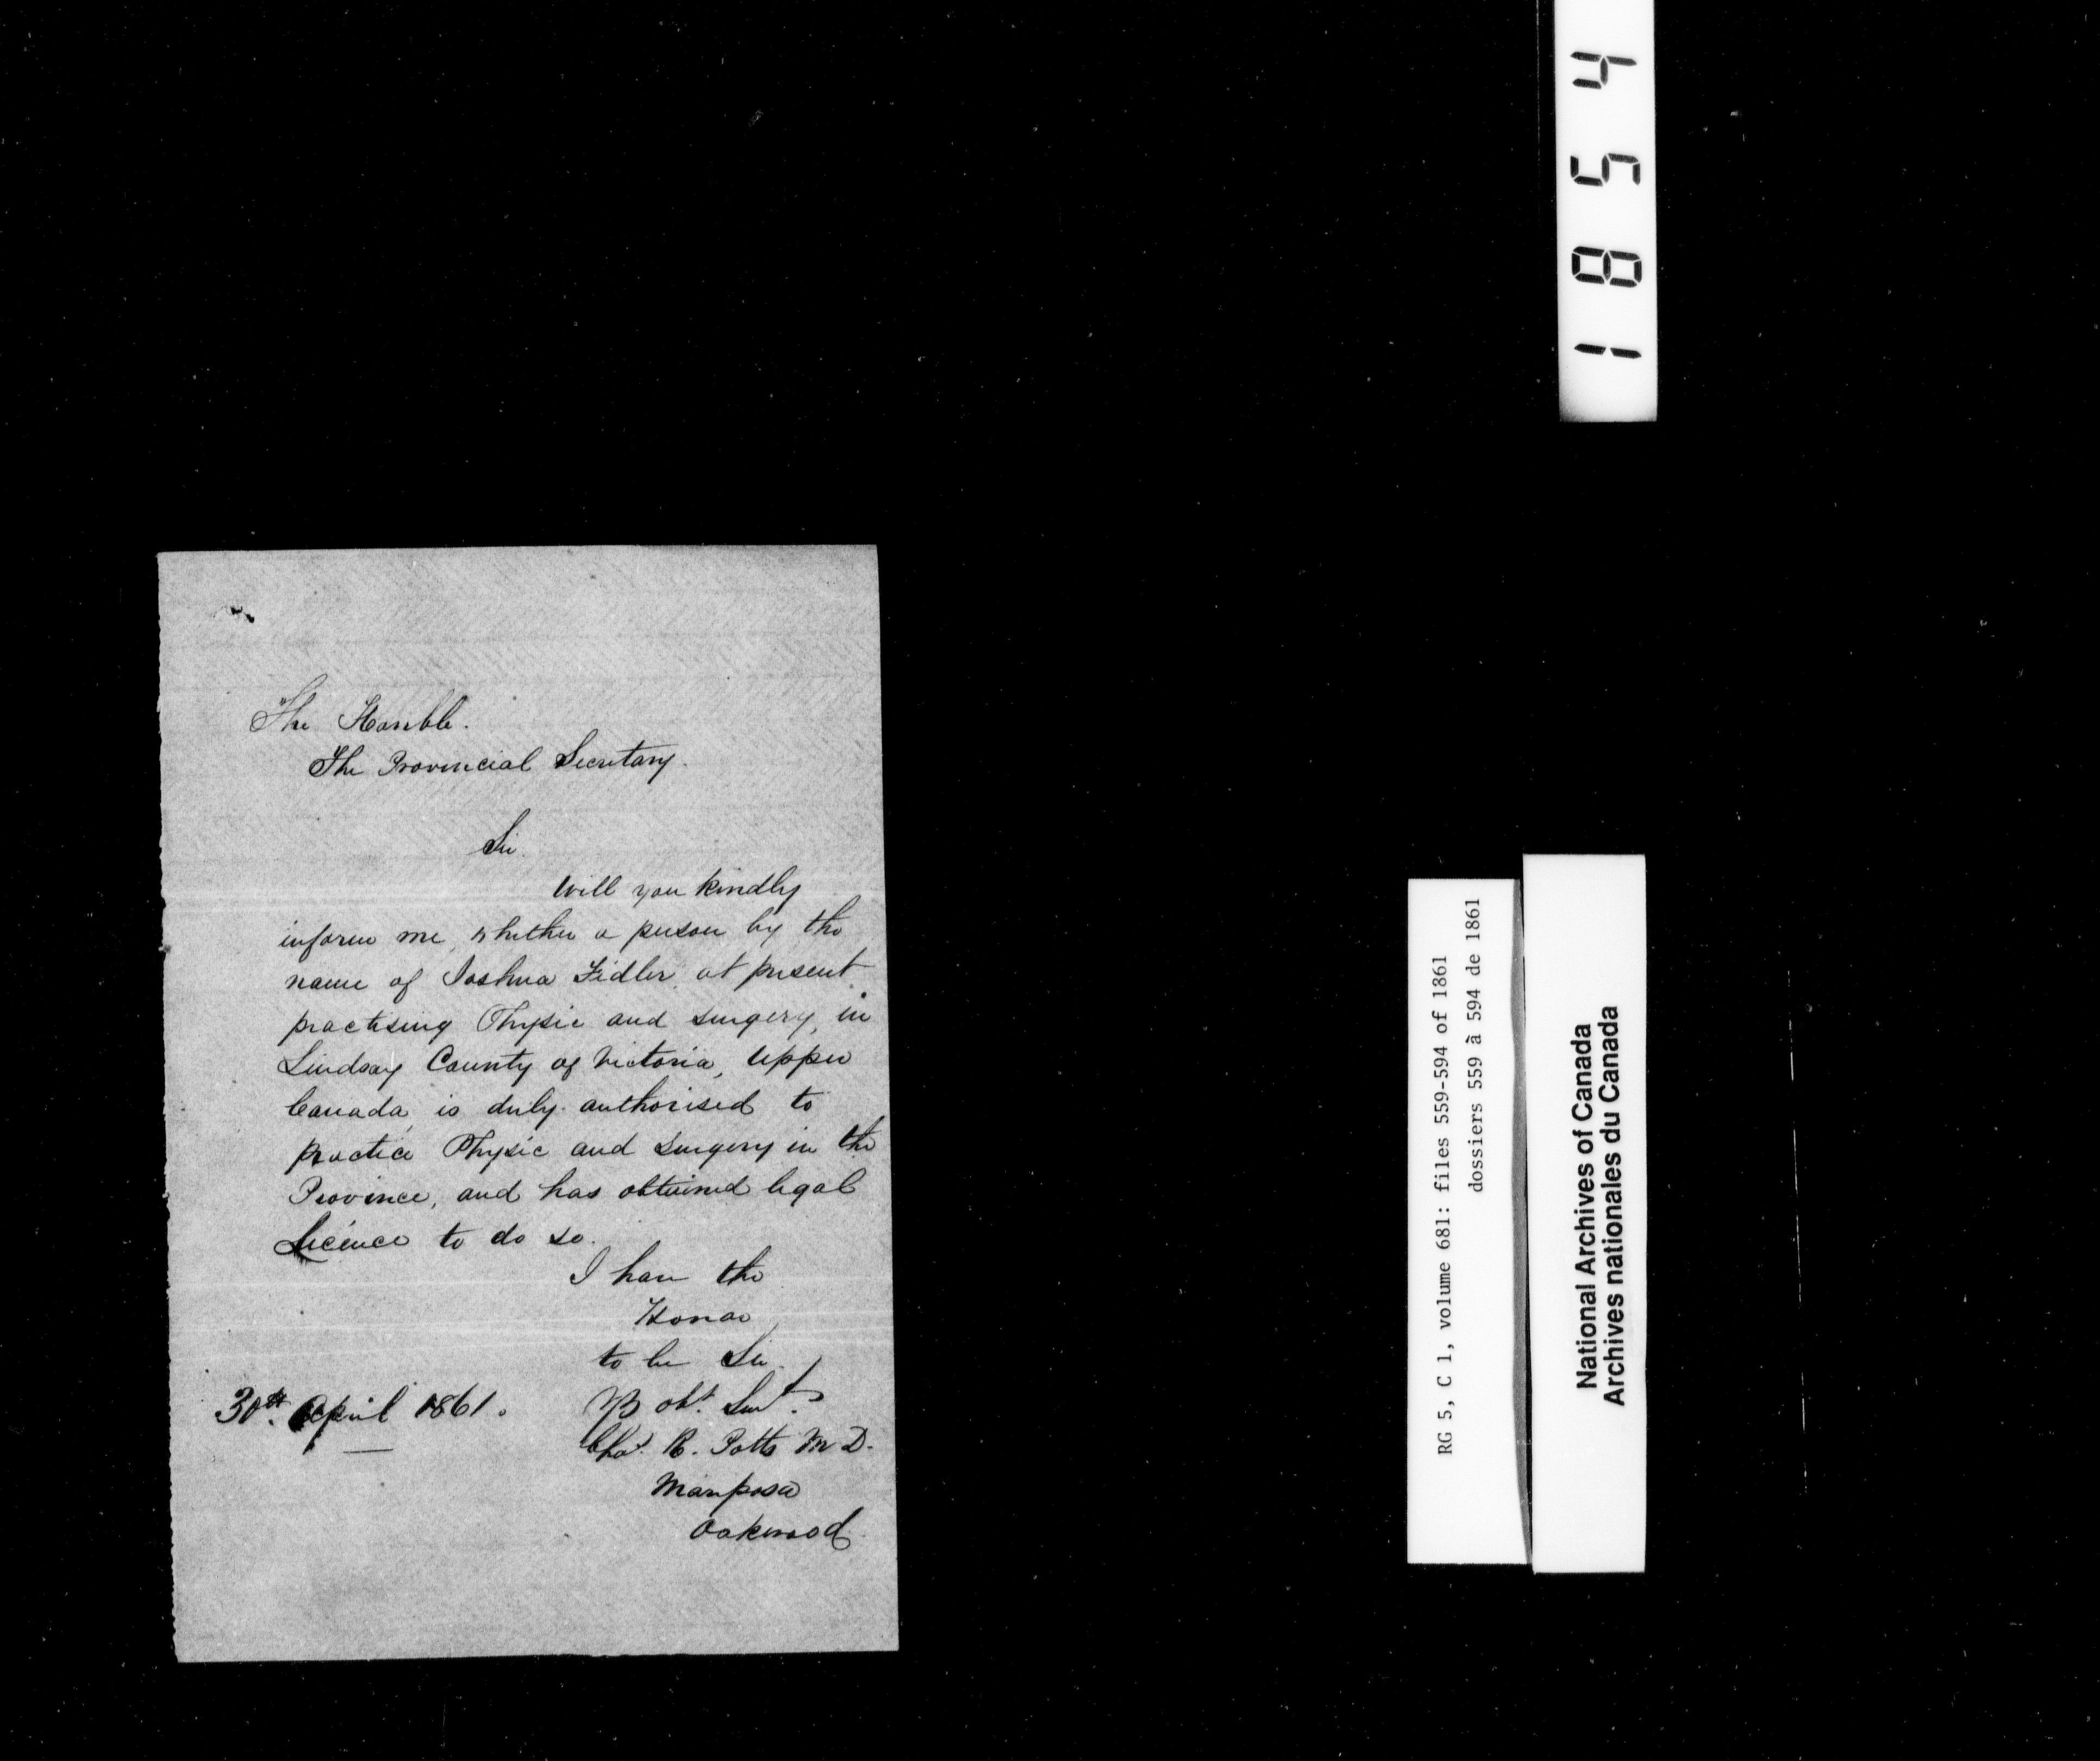 The Honble.
The Provincial Secretary.
Sir
Will you kindly
inform me, whether a person by the
name of Joshua Fidler, at present
practising Physic and surgery, in
Lindsay County of Victoria, Upper
Canada, is duly authorised to
practice Physic and Surgery in the
Province, and has obtained legal
Licence to do so.
I have the
Honor
to be Sir.
obt. Svt.
30th. April 1861.
Chas. R. Potts M D.
Mariposa
Oakwood
1854
RG 5, C 1, volume 681: files 559-594 of 1861
dossiers 559 à 594 de 1861
National Archives of Canada
Archives nationales du Canada